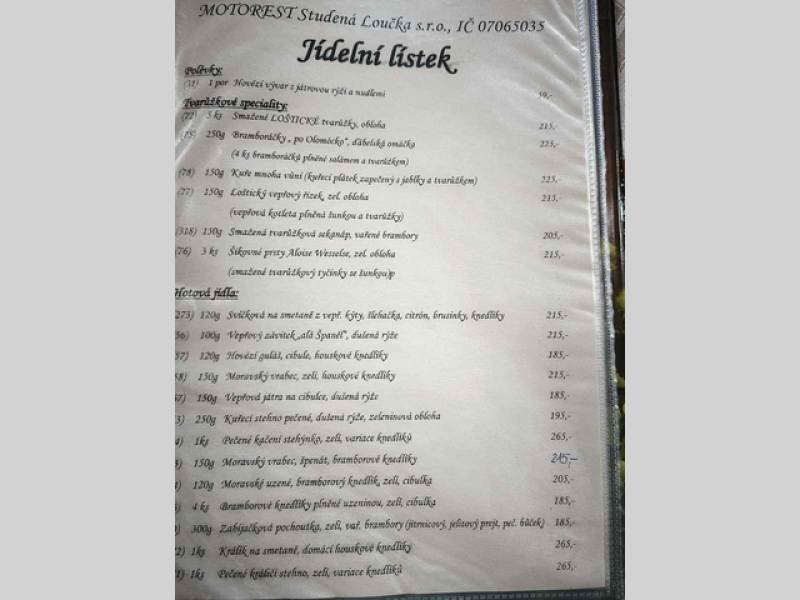 MOTOREST Studená Loučka s.r.o., IČ 07065035
Jídelní lístek
Polévky:
(31) 1 por Hovězí vývar s játrovou rýží a nudlemi 59,-
Tvarůžkové speciality:
(72) 5 ks Smažené LOŠTICKÉ tvarůžky, obloha 215,-
(75) 250g Bramboráčky „ po Olomócko", ďábelská omáčka 225,-
(4 ks bramboráčků plněné salámem a tvarůžkem)
(78) 150g Kuře mnoha vůní (kuřecí plátek zapečený s jablky a tvarůžkem) 225,-
(77) 150g Loštický vepřový řízek, zel. obloha 215,-
(vepřová kotleta plněná šunkou a tvarůžky)
(318) 150g Smažená tvarůžková sekanáp, vařené brambory 205,-
(76) 3 ks Šikovné prsty Aloise Wesselse, zel. obloha 215,-
(smažené tvarůžkový tyčinky se šunkou)p
Hotová jídla:
273) 120g Svíčková na smetaně z vepř. kýty, šlehačka, citrón, brusinky, knedlíky 215,-
56) 100g Vepřový závitek „alá Španěl", dušená rýže 215,-
57) 120g Hovězí guláš, cibule, houskové knedlíky 185,-
58) 150g Moravský vrabec, zelí, houskové knedlíky 215,-
67) 150g Vepřová játra na cibulce, dušená rýže 185,-
3) 250g Kuřecí stehno pečené, dušená rýže, zeleninová obloha 195,-
4) 1ks Pečené kačení stehýnko, zelí, variace knedlíků 265,-
150g Moravský vrabec, špenát, bramborové knedlíky 215,-
120g Moravské uzené, bramborový knedlík, zelí, cibulka 205,-
4 ks Bramborové knedlíky plněné uzeninou, zelí, cibulka 185,-
300g Zabíjačková pochoutka, zelí, vař. brambory (jitrnicový, jelitový prejt, peč. bůček) 185,-
2) 1ks Králík na smetaně, domácí houskové knedlíky 265,-
1) 1ks Pečené králičí stehno, zelí, variace knedlíků 265,-